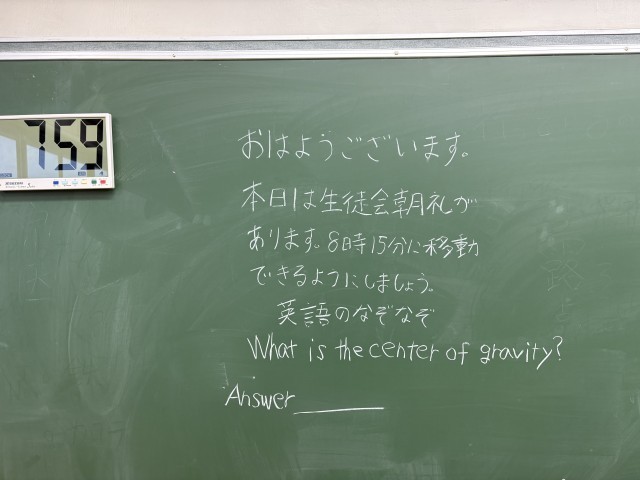 7:59
おはようございます。
本日は生徒会朝礼が
あります。8時15分に移動
できるようにしましょう。
英語のなぞなぞ
What is the center of gravity?
Answer